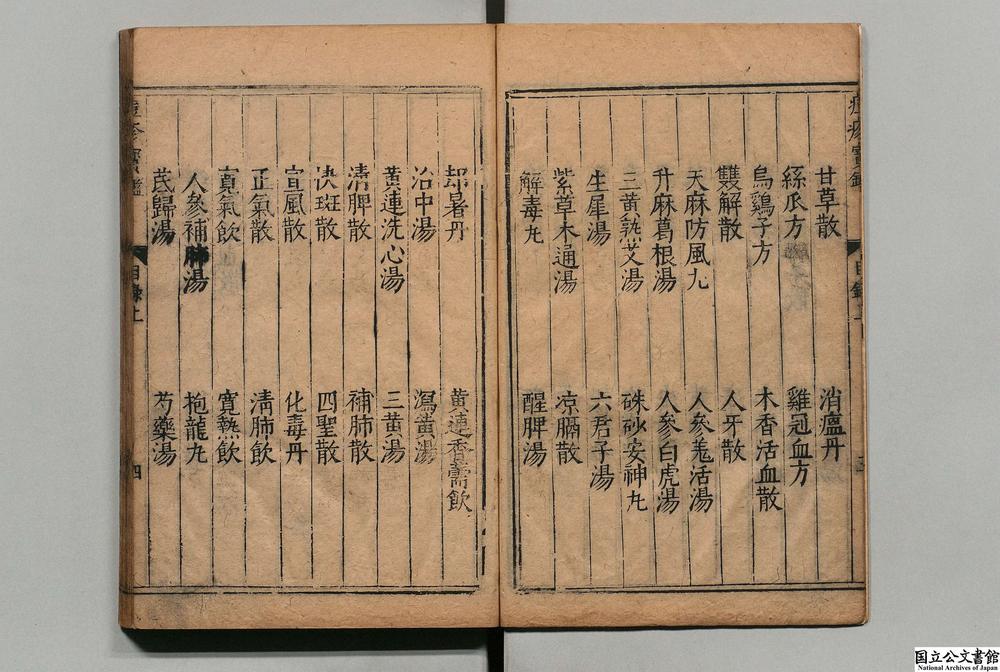 甘草散 消瘟丹
絲瓜方 雞冠血方
烏鷄子方 木香活血散
雙解散 人牙散
天麻防風九 人參羗活湯
升麻葛根湯 人參白虎湯
三黃熟艾湯 硃砂安神九
生犀湯 六君子湯
紫草木通湯 凉膈散
解毒九 醒脾湯
却暑丹 黃連香薷飲
治中湯 瀉黃湯
黃連洗心湯 三黃湯
清脾散 補肺散
快斑散 四聖散
宣風散 化毒丹
正氣散 淸肺飲
寬氣飲 寬熱飲
人參補肺湯 抱龍九
芪歸湯 芍藥湯
目錄上 四
国立公文書館
National Archives of Japan